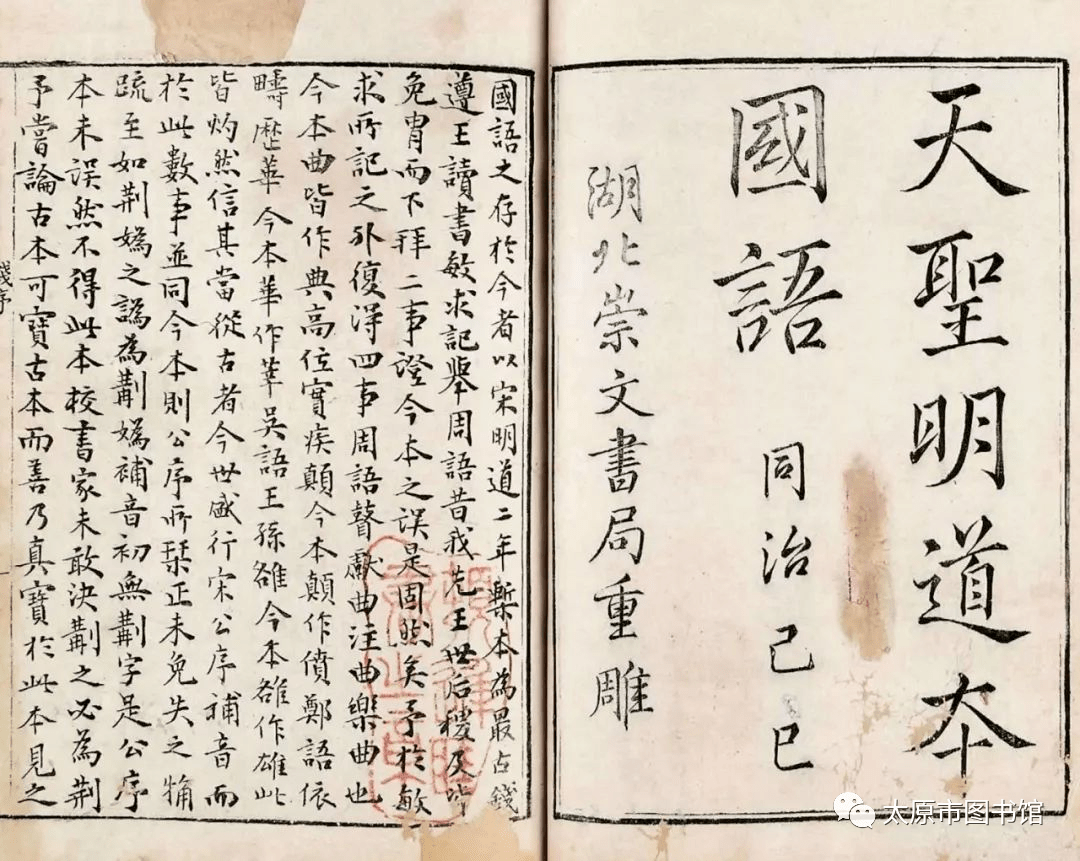 天聖明道本
國語
同治己巳
湖北崇文書局重雕
國語之存於今者以宋明道二年槧本為最古錢
遵王讀書敏求記舉周語昔我先王世后稷及皆
免冑而下拜二事證今本之誤是固然矣予於敏
求所記之外復得四事周語瞽獻曲注曲樂曲也
今本曲皆作典高位實疾顛今本顛作僨鄭語依
疇歷華今本華作莘吳語王孫雒今本雒作雄此
皆灼然信其當從古者今世盛行宋公序補音而
於此數事並同今本則公序所栞正未免失之觕
疏至如荆嬀之譌為薊嬀補音初無薊字是公序
本未誤然不得此本校書家未敢決薊之必為荆
予嘗論古本可寶古本而善乃真寶於此本見之
錢序
一
太原市图书馆